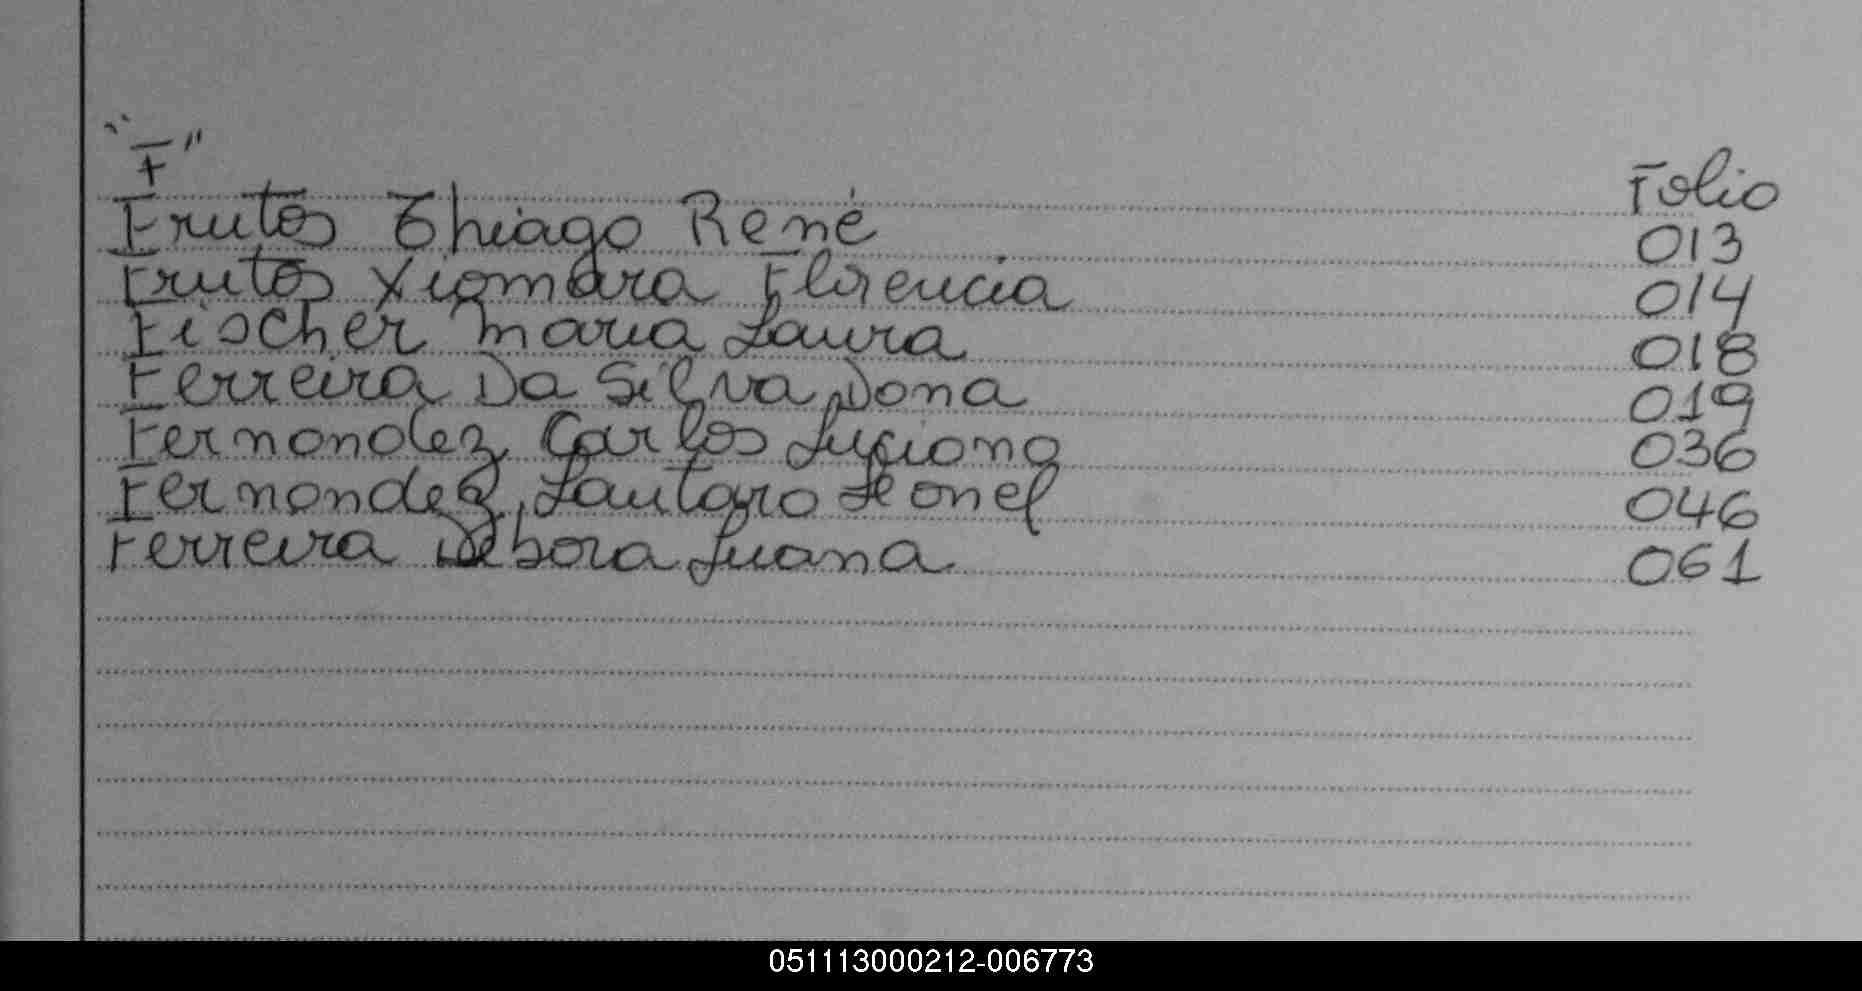 "F"
Folio
Frutos Thiago René 013
Frutos Xiomara Florencia 014
Fischer Maria Laura 018
Ferreira Da Silva Dona 019
Fernandez Carlos Luciano 036
Fernandez Lautaro Leonel 046
Ferreira Debora Luana 061
051113000212-006773